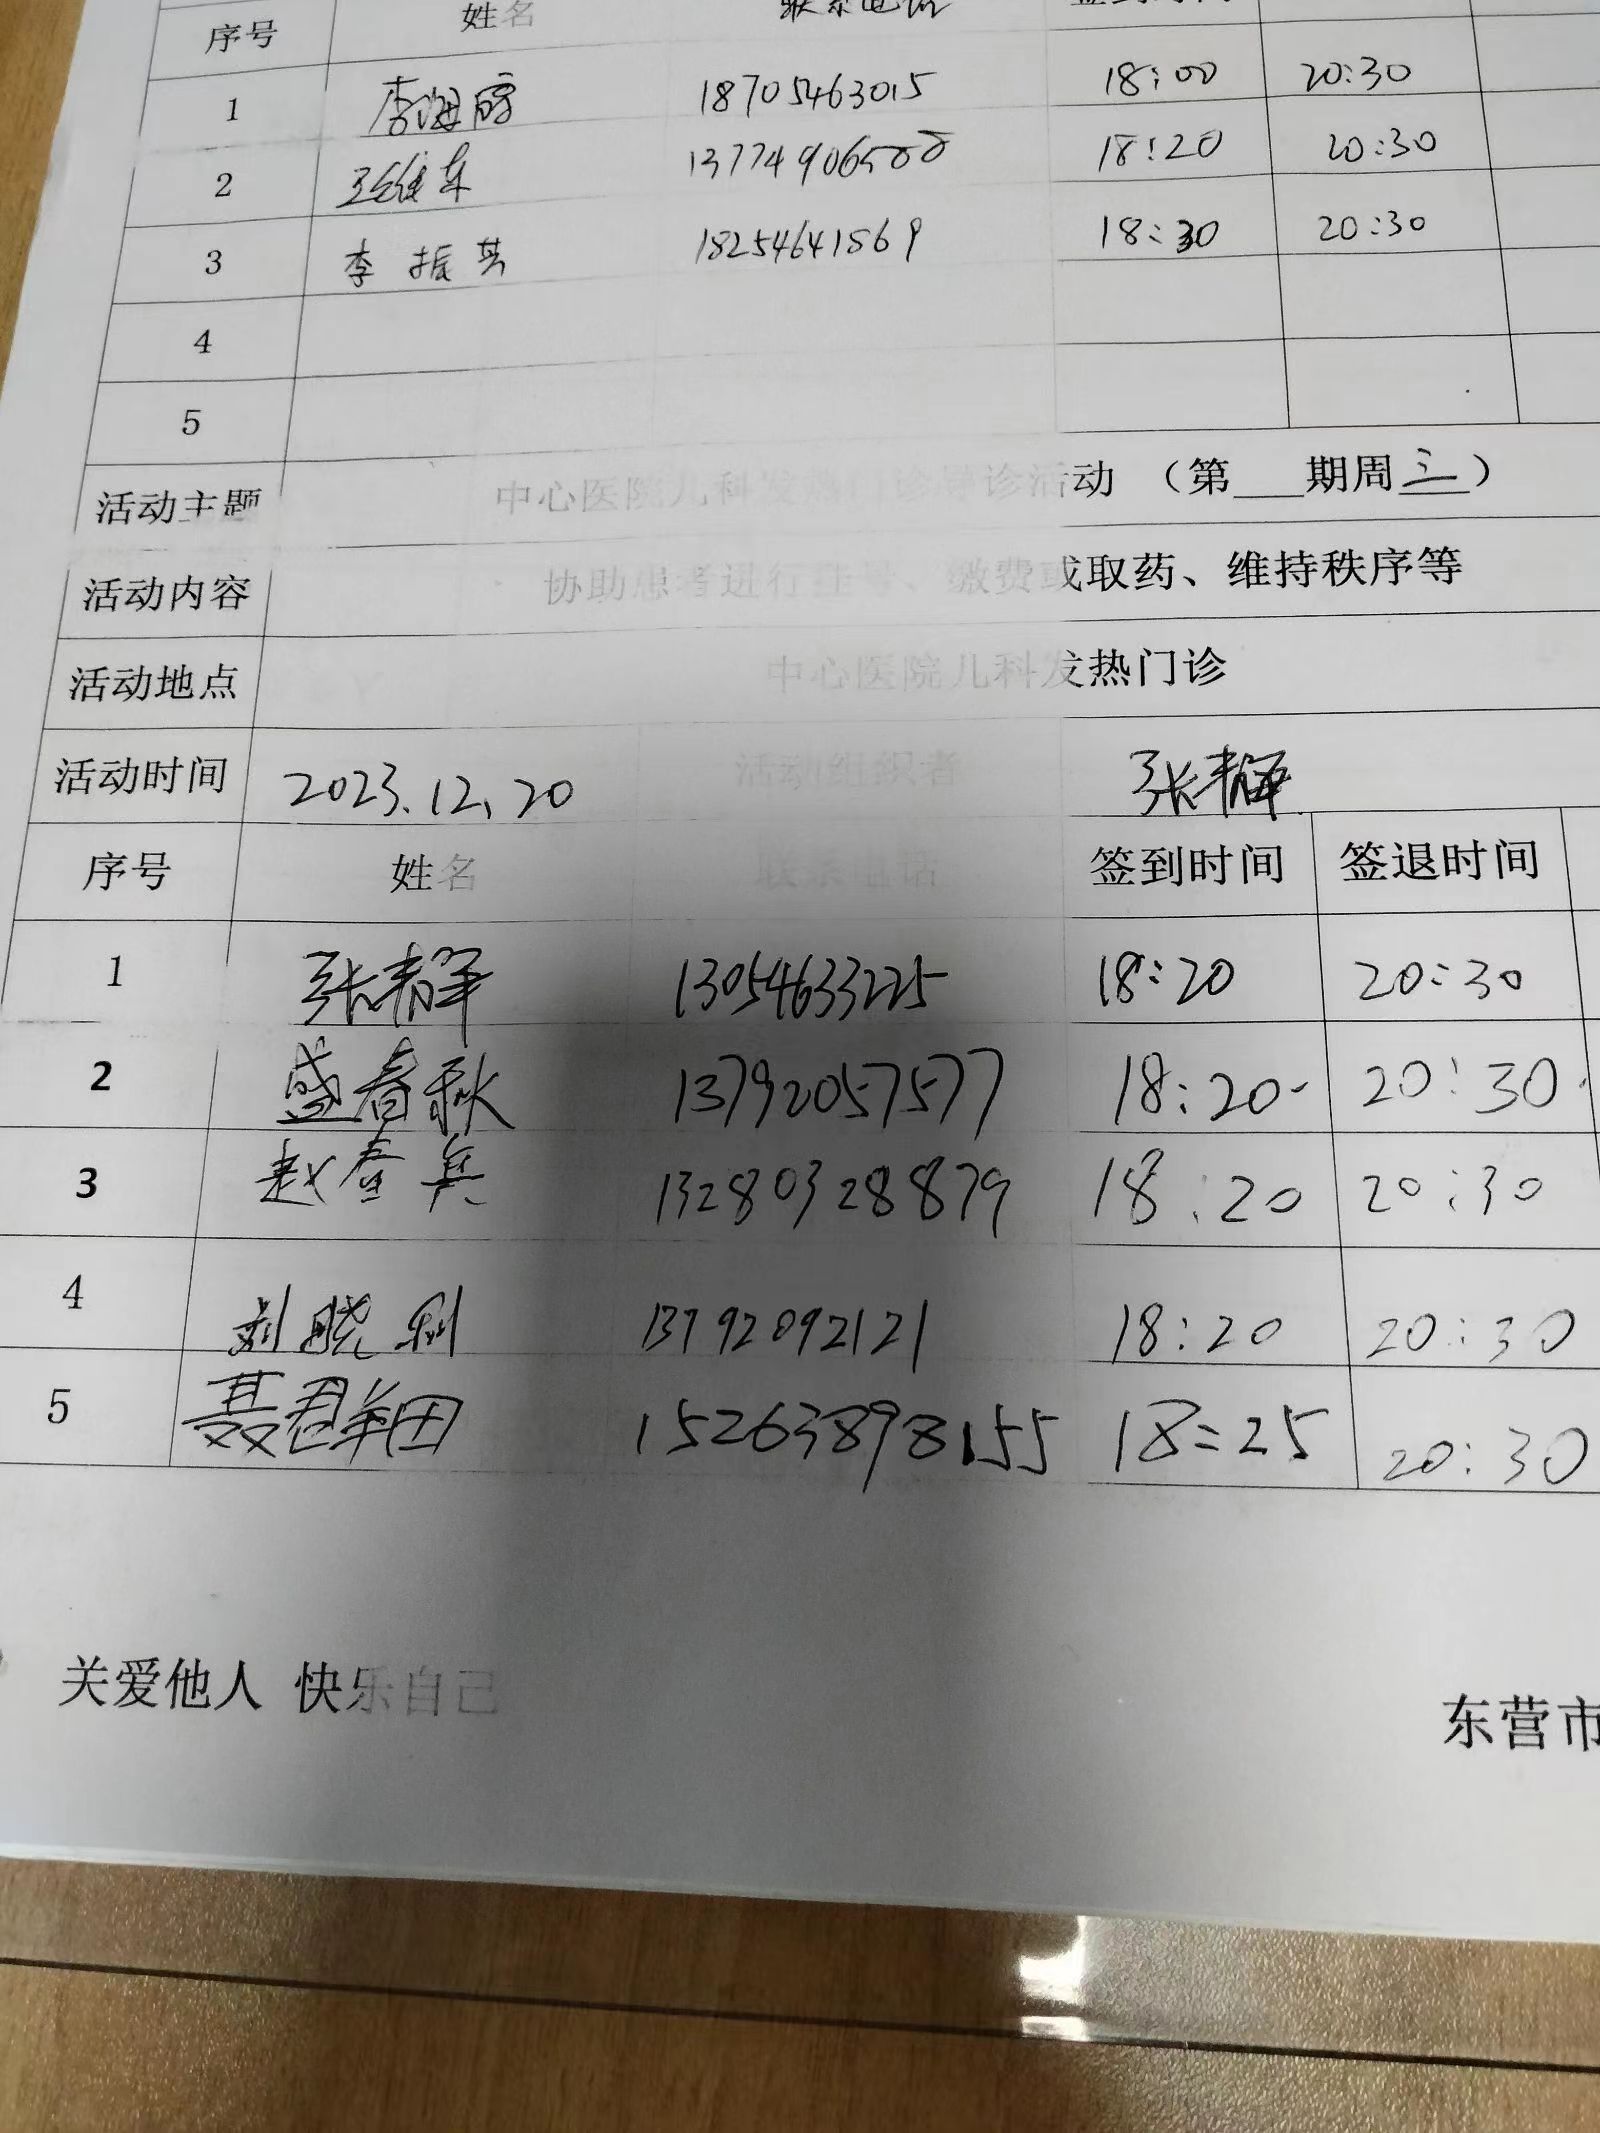 序号 姓名 联系电话 签到时间
1 李海 18705463015 18:00 20:30
2 张维东 13774906500 18:20 20:30
3 李振其 18254641569 18:30 20:30
4
5
活动主题 中心医院儿科发热门诊导诊活动 （第___期周三）
活动内容 协助患者进行挂号、缴费或取药、维持秩序等
活动地点 中心医院儿科发热门诊
活动时间 2023.12.20 活动组织者 张静
序号 姓名 联系电话 签到时间 签退时间
1 张静 13054633225 18:20 20:30
2 盛春秋 13792057577 18:20 20:30
3 赵奎兵 13280328879 18:20 20:30
4 刘晓利 13792092121 18:20 20:30
5 聂君 15263898155 18:25 20:30
关爱他人 快乐自己
东营市